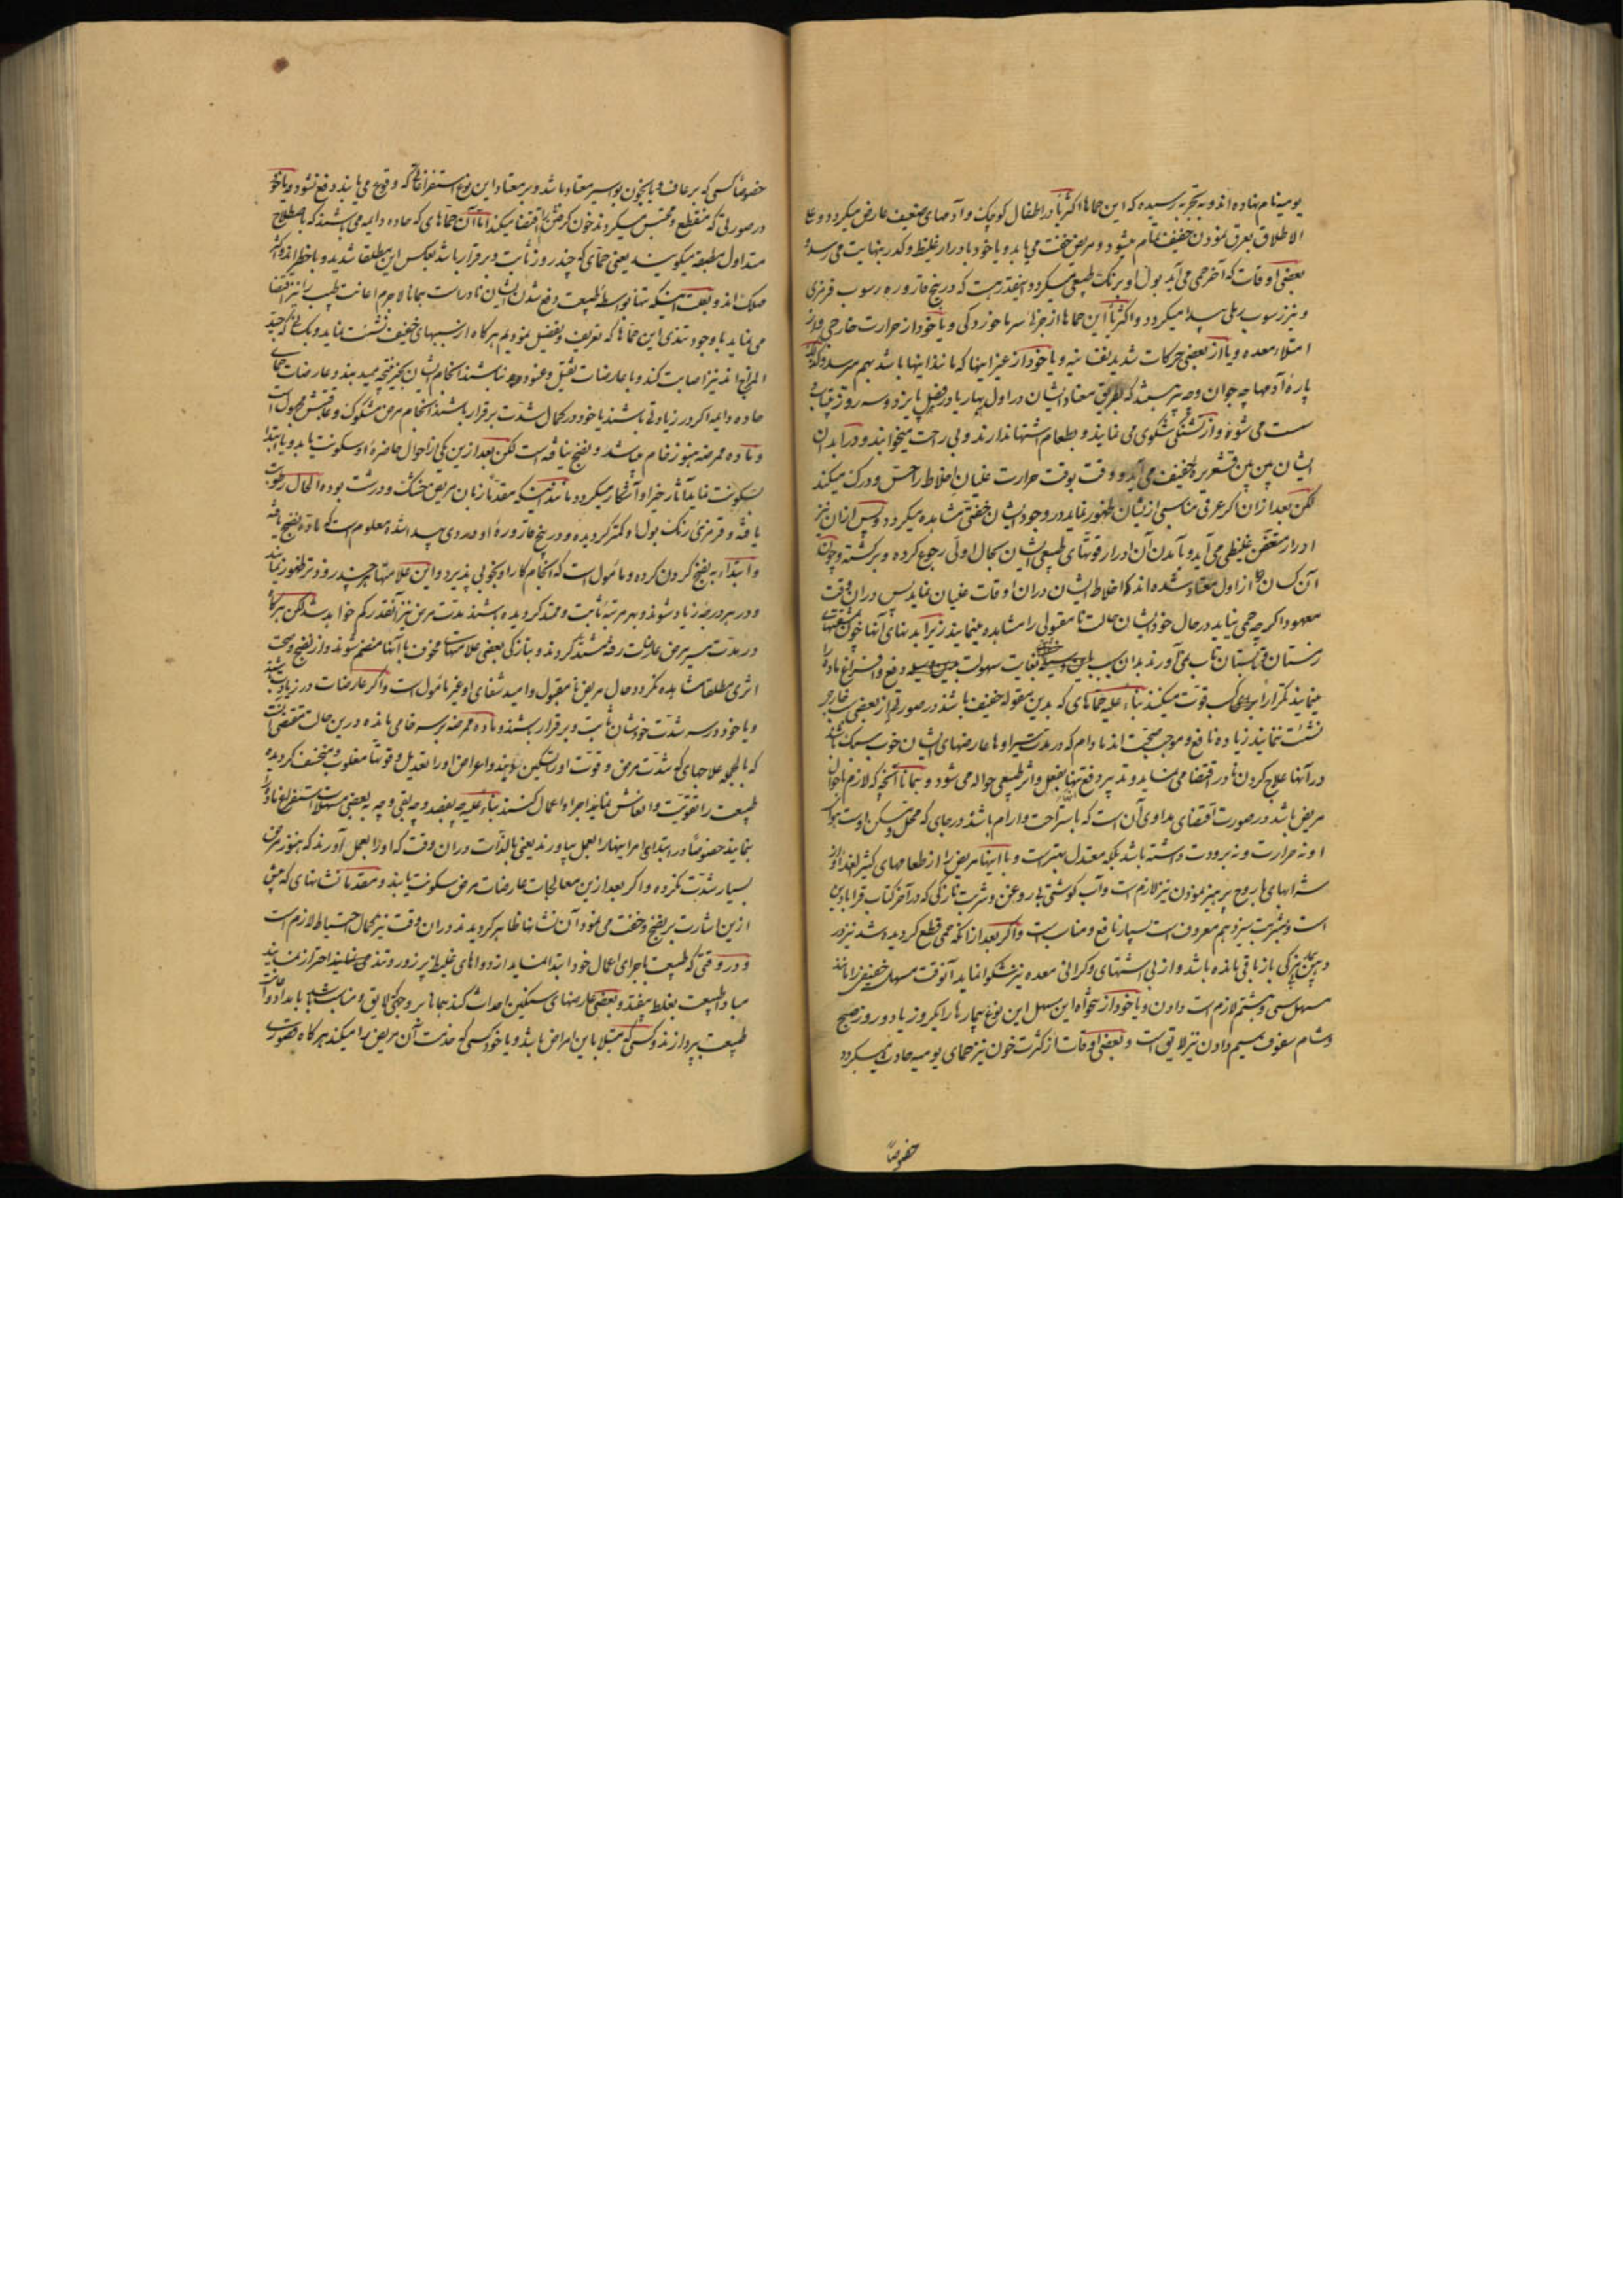 یومیه نام نهاده اند و به تجربه رسیده که این حماها اکثریا در اطفال کوچک و آدمهای ضعیف عارض میکردد و علی
الاطلاق بعرق نمودن خفیف تمام میشود و مریض خفت می یابد و یا خود با درار غلیظ و کدر بنهایت می رسد و
بعضی اوقات که آخر حمی می آید بول او برنک طبیعی میکردد اینقدر هست که در بیخ قاروره رسوب قرمزی
و نیز رسوب رملی پیدا میکردد و اکثریا این حماها از جزئی سرما خوردکی و یا خود از حرارت خارجی و از
امتلاء معده و یا از بعضی حرکات شدید نفسانیه و یا خود از غیر اینها که مانند اینها باشد بهم میرسد
پاره آدمها چه جوان و چه پیر بطریق معتاد ایشان در اول بهار یا در فصل پاییز دو سه روز
سست می شوند و از تشنکی شکوی می نمایند و بطعام اشتها ندارند و بی راحت میخوابند و در ابدان
ایشان قشعریره خفیف می آید و وقت بوقت حرارت غلیان اخلاط را حس و درک میکند
لکن بعد از آن اکر عرقی مناسبی از ایشان ظهور نماید در وجود ایشان خفتی مشاهده میکردد و پس از آن نیز
ادرار متعفن غلیظی می آید و با آمدن آن ادرار قوتهای طبیعی ایشان بحال اولی رجوع کرده و برکشته و چون
آن کسان از اول معتاد شده اند که اخلاط ایشان در آن اوقات غلیان نماید پس در آن وقت
معهود اکر چه حمی نیاید در حال خود ایشان حالت نامقبولی را مشاهده مینمایند زیرا بدنهای آنها
زمستان تابستان تاب نمی آورند بدان سبب بغایت سهولت دفع و افراغ ماده
مینمایند تکرار کسب قوت میکنند بناء علیه حماهای که بدین مقوله خفیف باشند در صورتی که از بعضی سبب خارجی
نشئت ننمایند زیاده نافع و موجب صحت اند مادام که در مدت سیر او با عارضهای ایشان خوب سبک باشد
در آنها علاج کردن نادر اقتضا می نماید و تدبیر دفع تنها بفعل و اثر طبیعی حواله می شود و بماند آنچه که لازم باحوال
مریض باشد در صورت اقتضای مداوی آن است که باستراحت و آرام باشد در جای که محل و مسکن اوست هوای
او نه حرارت و نه برودت داشته باشد بلکه معتدل بهتر است و با اینها مریض را از طعامهای کثیر الغذا و از
شرابهای با روح پرهیز نمودن نیز لازم است و آب کوشتی بی روغن و شربت نازکی که در آخر کتاب قرابادین
است و بشربت سیزدهم معروف است بسیار نافع و مناسب است و اکر بعد از آنکه حمی قطع کردیده شد نیز در
دهن باز باقی مانده باشد و از بی اشتهای و کرانی معده نیز شکوا نماید آنوقت مسهل خفیفی را مانند
مسهل سی و هشتم لازم است دادن و یا خود از این مسهل این نوع بیمارها را یکروز یا دو روز صبح
و شام سفوف بیستم دادن نیز لایق است و بعضی اوقات از کثرت خون نیز حمای یومیه حادث میکردد
خصوصا
خصوصا کسی که برعاف و یا بخون بواسیر معتاد باشد و بر معتاد این نوع استفراغاتی که وقوع می یابند دفع نشود و یا خود
در صورتی که منقطع و محتبس میکردند خون کرفتن را اقتضا میکند اما آن حماهای که حاده دایمه می باشند که باصطلاح
متداول مطبقه میکویند یعنی حمای که چند روز ثابت و برقرار باشد بعکس این مطلقا شدید و با خطر اند و اکثر
مهلک اند و بغیر اینکه تنها بواسطه طبیعت دفع شدن ایشان نادر است بماند لاجرم اعانت طبیب را نیز اقتضا
می نماید با وجود تندی این حماها که تعریف و تفصیل نمودیم هرکاه از سببهای خفیف نشئت نماید و بکسانی که جید
المزاج اند نیز اصابت کند و با عارضات ثقیل و عنود نباشند انجام ایشان بخیر منتج میبینند و عارضات حمای
حاده دایمه اکر در زیادتی باشند یا خود در کمال شدت برقرار باشند انجام مرض مشکوک و عاقبتش مجهول است
و ماده ممرضه هنوز خام میباشد و نضج نیافته است لکن بعد از این یکی از احوال حاضره او سکونت یابد و یا ابتدا
بسکونت نماید آثار خیر او آشکار میکردد مانند اینکه مقدما زبان مریض خشک و درشت بوده الحال رطوبت
یافته و قرمزی رنک بول او کمتر کردیده و در بیخ قاروره او دردی پیدا شد معلوم است که ماده نضج یافته
و ابتداء به نضج کردن کرده و مأمول است که انجام کار او بخوبی پذیرد و این علامتها هر چند زودتر ظهور نماید
و در هر درجه زیاد شوند و بهر مرتبه ثابت و ممتد کردیده باشند مدت مرض نیز آنقدر کم خواهد شد لکن هرکاه
در مدت سیر مرض عارضات رفته مشتد کردند و بتازکی بعضی علامتهای مخوف با آنها منضم شوند و از نضج و صحت
اثری مطلقا مشاهده نکردد حال مریض نامقبول و امید شفای او غیر مأمول است و اکر عارضات در زیادتی باشند
و یا خود در سر شدت خودشان ثابت و برقرار باشند و ماده ممرضه بر سر خامی مانده در این حالت مقتضی است
که بالجمله علاجهای که شدت مرض و قوت او را تسکین بدهند و اعراض او را تعدیل و قوتا مغلوب و مخفف کردیده
طبیعت را تقویت و انعاش نماید اجرا و اعمال کنند بناء علیه چه بفصد و چه بقی و چه به بعضی مسهلات استفراغ ماده
بنمایند خصوصا در ابتدای امر اینها را بعمل بیاورند یعنی بالذات در آن وقت که او را بعمل آورند که هنوز مرض
بسیار شدت نکرده و اکر بعد از این معالجات عارضات مرض سکونت یابند و مقدما نشانهای که پیش
از این اشارت بر نضج و خفت می نمود آن نشانها ظاهر کردیدند در آن وقت نیز بکمال احتیاط لازم است
و در وقتی که طبیعت باجرای اعمال خود ابتدا نماید از دواهای غلیظ پر زور و تند احتراز نمایند
مبادا طبیعت بغلط بیفتد و بعضی عارضهای سنکین احداث کند بماند بر وجهی که لایق و مناسب باشد باید باعانت
طبیعت بپردازند و کسی که مبتلا باین امراض باشد و یا خود کسی که خدمت آن مریض را میکند هرکاه بصورت